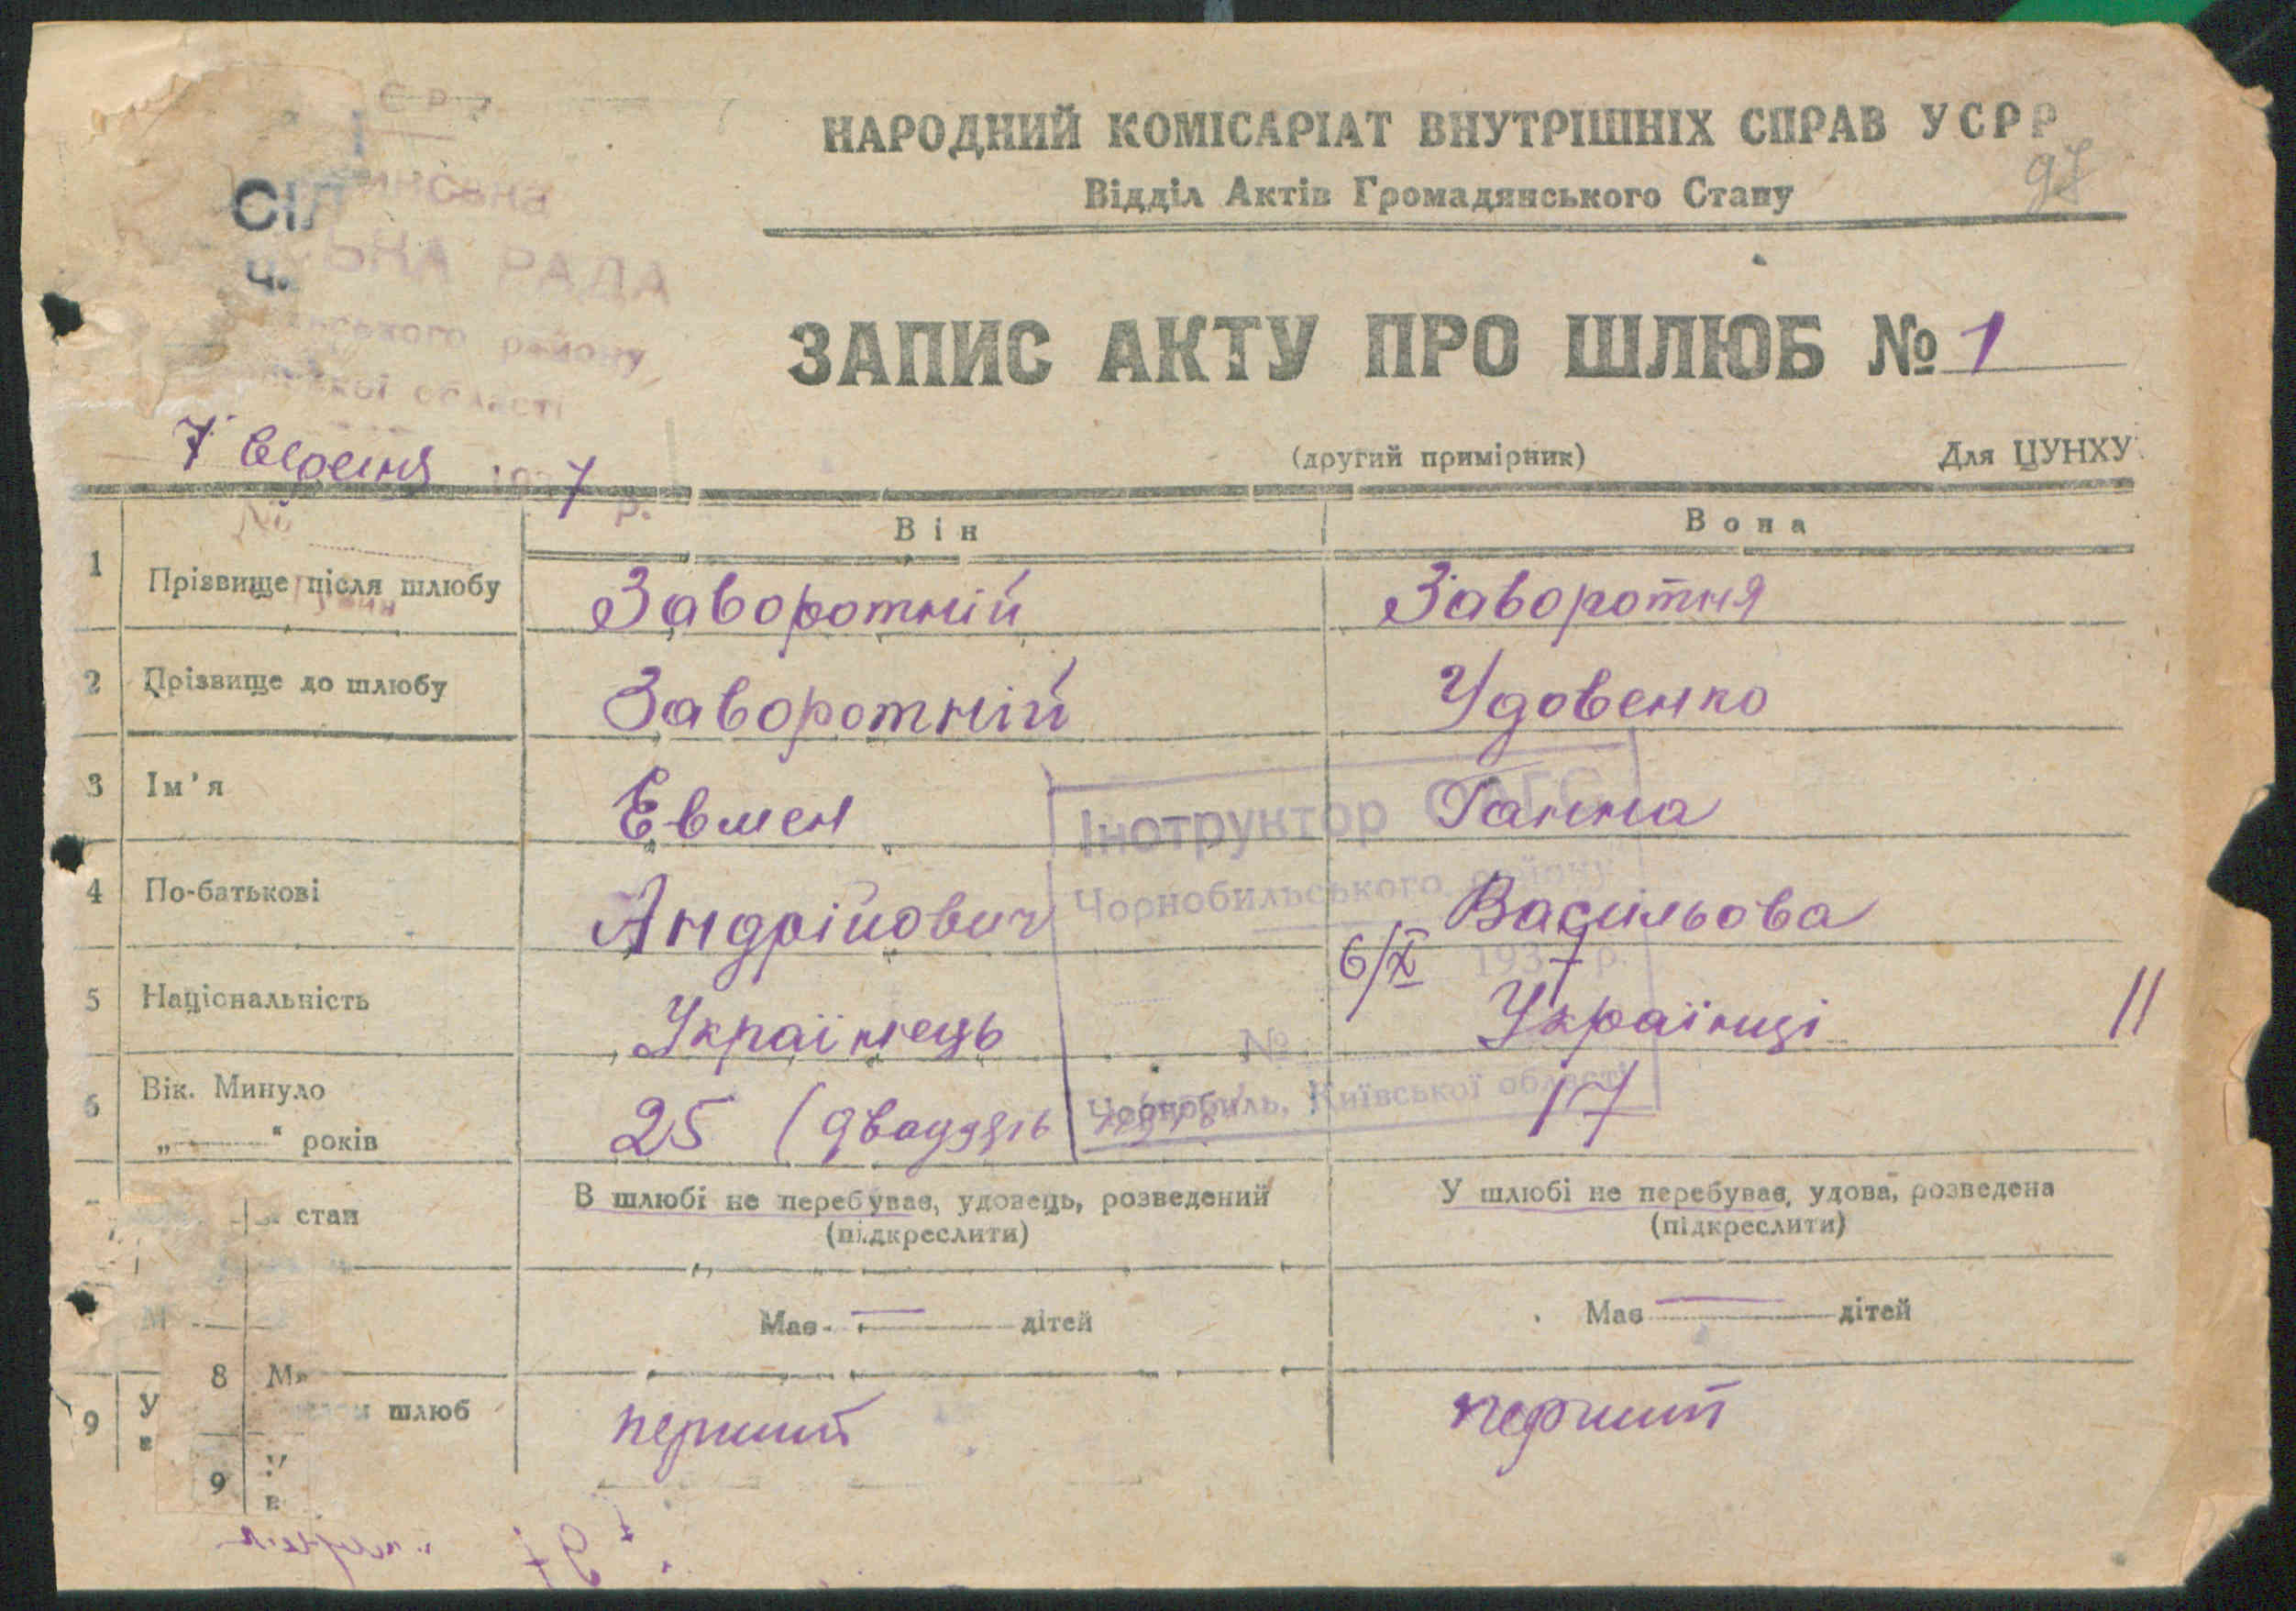 НАРОДНИЙ КОМІСАРІАТ ВНУТРІШНІХ СПРАВ УСРР
97
Відділ Актів Громадянського Стану
СІЛ
ЬНА РАДА
ч.
ського району
кої області
ЗАПИС АКТУ ПРО ШЛЮБ № 1
7 вересня 1937 р.
(другий примірник)
Для ЦУНХУ
№
Він
Вона
1 Прізвище після шлюбу Заворотній Заворотня
2 Прізвище до шлюбу Заворотній Удовенко
3 Ім'я Евмен Ганна
Інструктор ОАГС
4 По-батькові Андрійович Васильова
Чорнобильського району
6/X 1937 р.
5 Національність Українець Українці
11
№
6 Вік. Минуло „ “ років 25 (двадцять 17
Чорнобиль, Київської області
стан
В шлюбі не перебуває, удовець, розведений
(підкреслити)
У шлюбі не перебуває, удова, розведена
(підкреслити)
Має — дітей
Має — дітей
8
9 У в шлюб перший перший
9 в